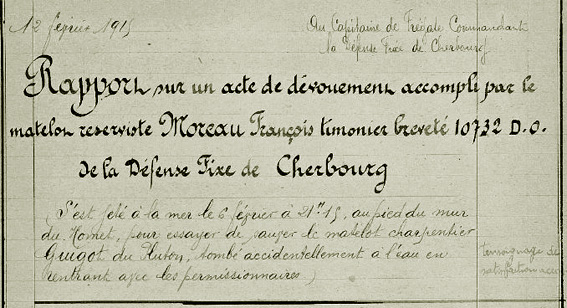 12 février 1915
Au Capitaine de Frégate Commandant
la Défense Fixe de Cherbourg
Rapport sur un acte de dévouement accompli par le
matelot reserviste Moreau François timonier breveté 10732 D.O.
de la Défense Fixe de Cherbourg
(S'est jeté à la mer le 6 février à 21h15, au pied du mur
du Homet, pour essayer de sauver le matelot charpentier
Guigot du Huton, tombé accidentellement à l'eau en
rentrant avec les permissionnaires)
temoignage de
satisfaction